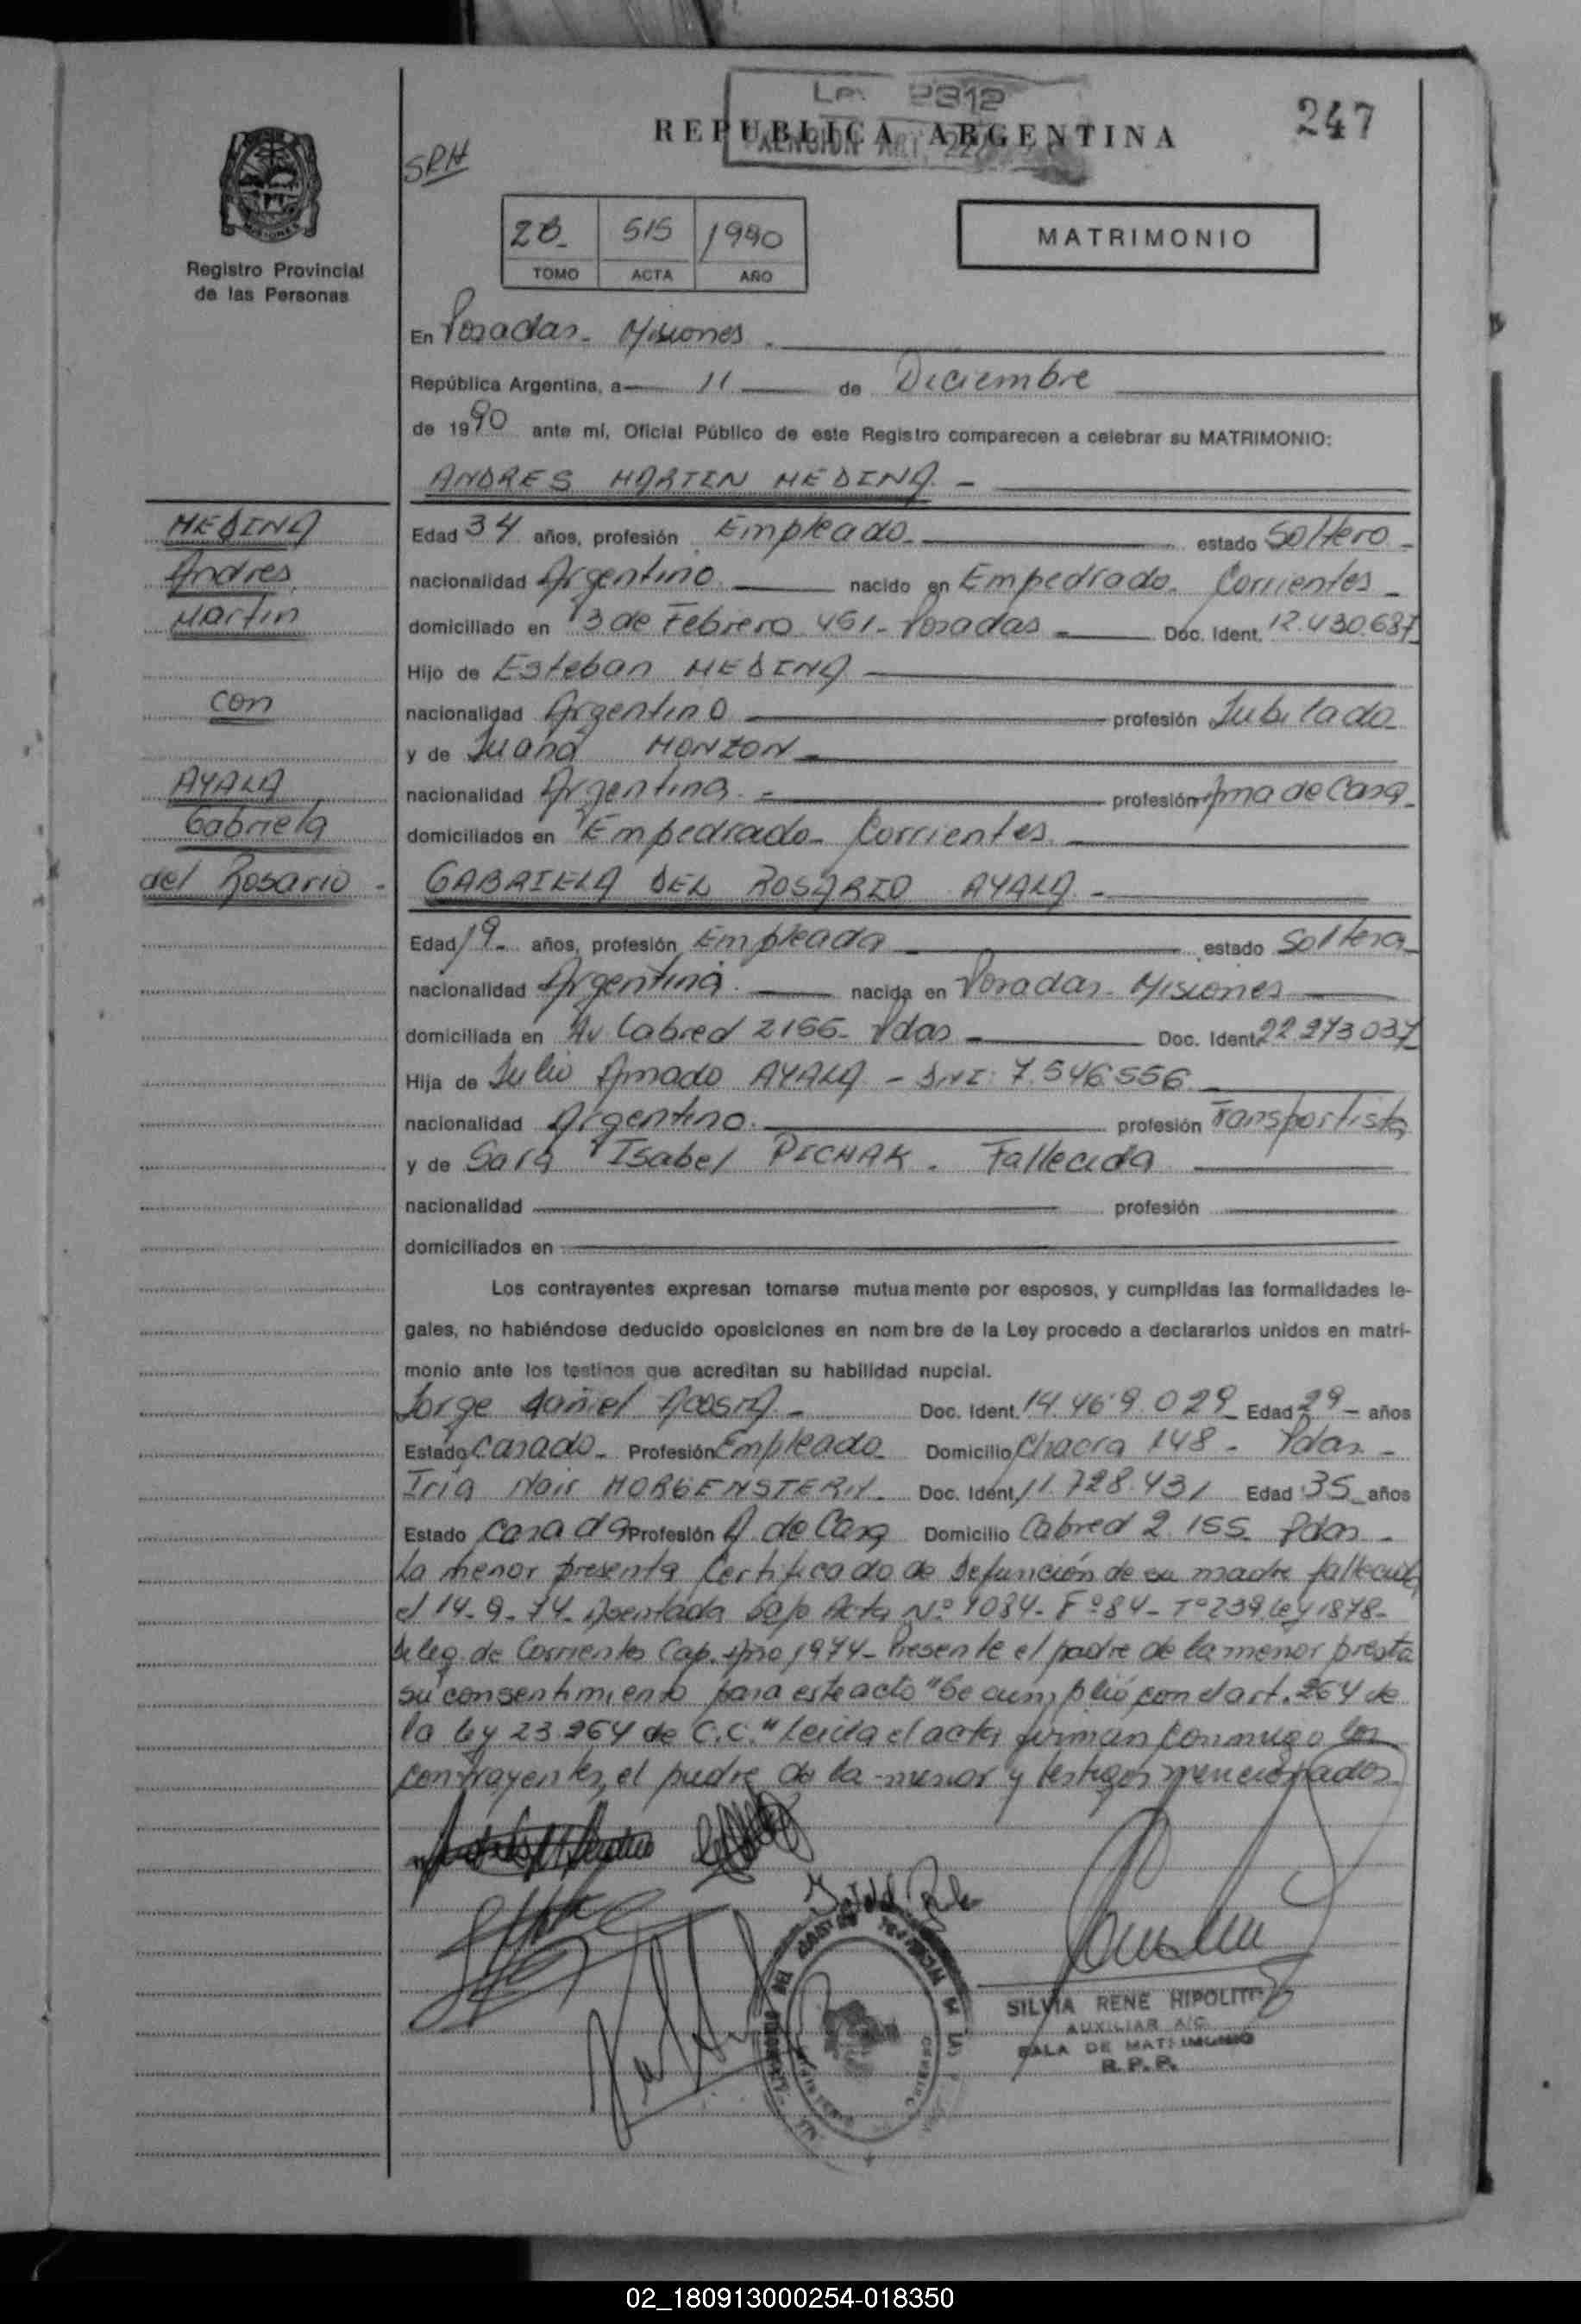 Ley 2312
EXENCION ART. 22
247
REPUBLICA ARGENTINA
SRH
Registro Provincial
de las Personas
2B 515 1990
TOMO ACTA AÑO
MATRIMONIO
En Posadas - Misiones
República Argentina, a 11 de Diciembre
de 1990 ante mí, Oficial Público de este Registro comparecen a celebrar su MATRIMONIO:
ANDRES MARTIN MEDINA
MEDINA
Andres
Martin
con
AYALA
Gabriela
del Rosario
Edad 34 años, profesión Empleado estado Soltero
nacionalidad Argentino nacido en Empedrado - Corrientes
domiciliado en 3 de Febrero 451 - Posadas Doc. Ident. 12.430.687
Hijo de Esteban MEDINA
nacionalidad Argentino profesión Jubilado
y de Juana MONZON
nacionalidad Argentina profesión Ama de Casa
domiciliados en Empedrado - Corrientes
GABRIELA DEL ROSARIO AYALA
Edad 19 años, profesión Empleada estado Soltera
nacionalidad Argentina nacida en Posadas - Misiones
domiciliada en Av Cabred 2155 - Pdas Doc. Ident. 22.273.037
Hija de Julio Amado AYALA - DNI: 7.546.556
nacionalidad Argentino profesión Transportista
y de Sara Isabel PICHAK. Fallecida
nacionalidad profesión
domiciliados en
Los contrayentes expresan tomarse mutuamente por esposos, y cumplidas las formalidades le-
gales, no habiéndose deducido oposiciones en nombre de la Ley procedo a declararlos unidos en matri-
monio ante los testigos que acreditan su habilidad nupcial.
Jorge Daniel ACOSTA Doc. Ident. 14.469.029 Edad 29 años
Estado Casado Profesión Empleado Domicilio Chacra 148 - Pdas.
Iria Nair MORGENSTERN Doc. Ident. 11.728.431 Edad 35 años
Estado Casada Profesión A. de Casa Domicilio Cabred 2.155 Pdas
La menor presenta Certificado de Defunción de su madre fallecida
el 14-9-74. Asentada bajo Acta Nº 1084 - Fº 84 - Tº 239 Ley 1878-
Deleg. de Corrientes Cap. Año 1974 - Presente el padre de la menor presta
su consentimiento para este acto "Se cumplió con el art. 264 de
la ley 23.264 de C.C." Leída el acta firman conmigo los
contrayentes, el padre de la menor y testigos mencionados
SILVIA RENE HIPOLITO
AUXILIAR A/C
SALA DE MATRIMONIO
R.P.P.
02_180913000254-018350